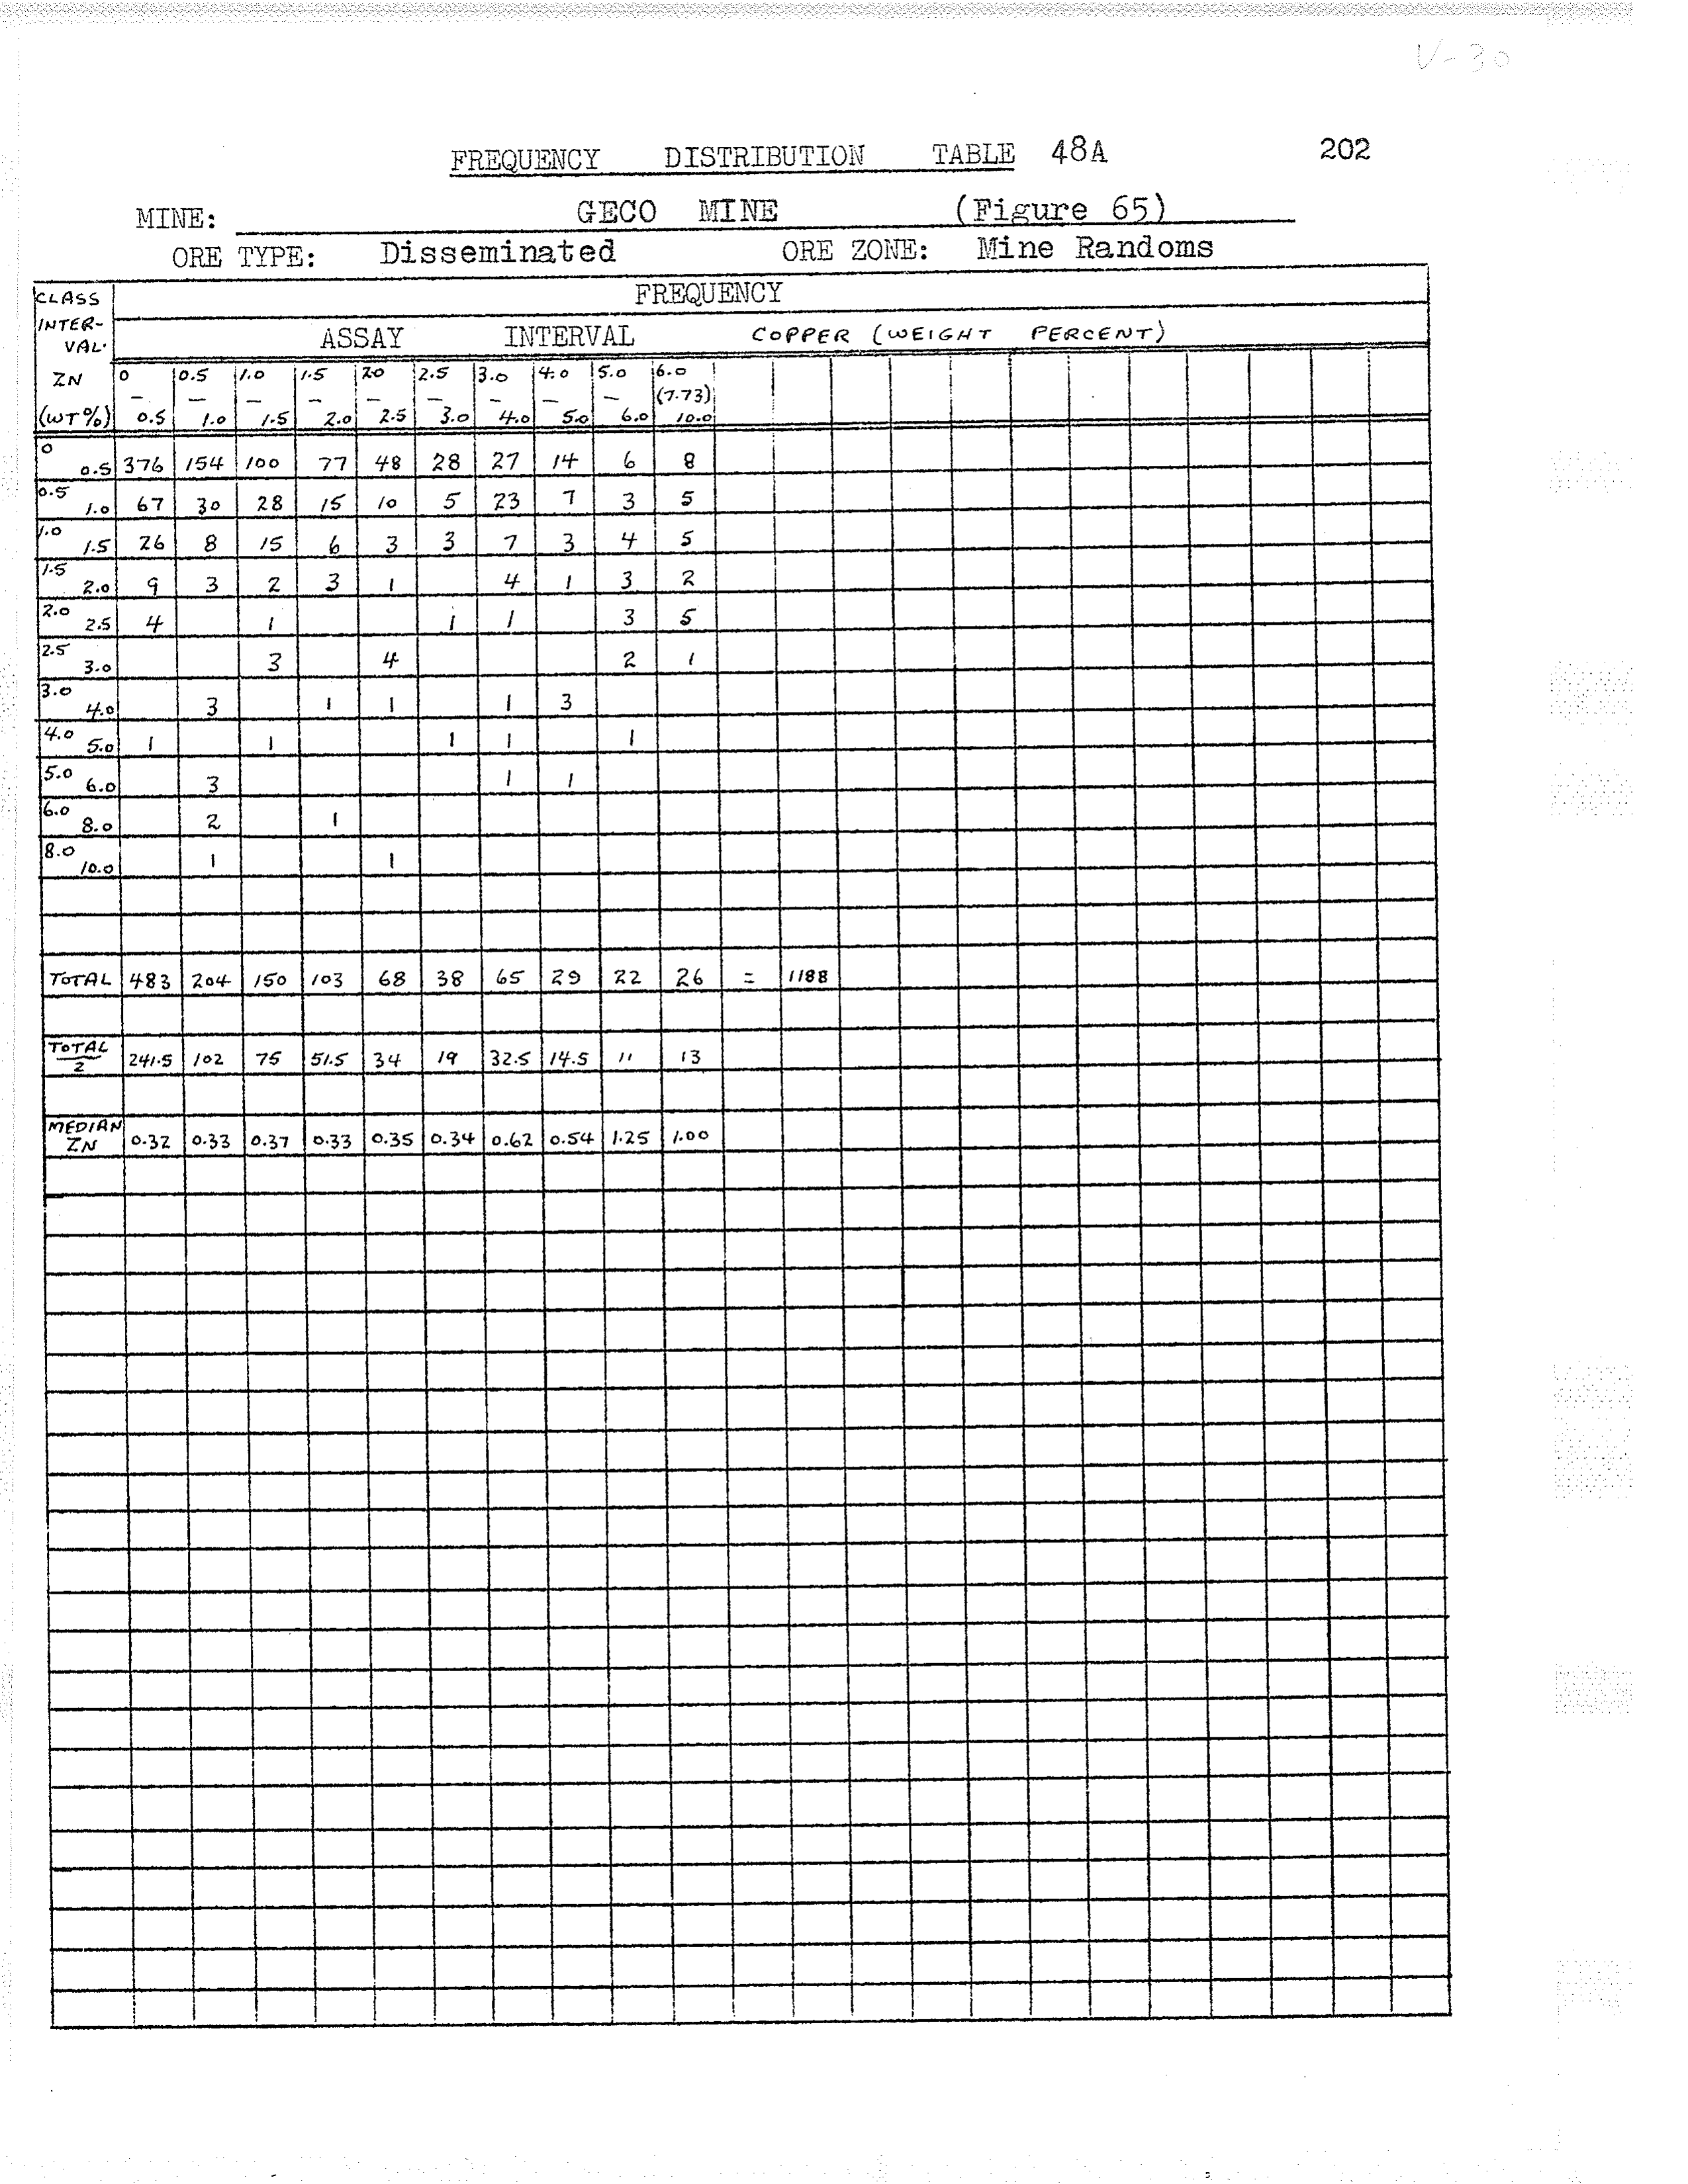 V-30
FREQUENCY DISTRIBUTION TABLE 48A 202
MINE: GECO MINE (Figure 65)
ORE TYPE: Disseminated ORE ZONE: Mine Randoms
CLASS INTER- VAL. FREQUENCY
ASSAY INTERVAL COPPER (WEIGHT PERCENT)
ZN 0 0.5 1.0 1.5 20 2.5 3.0 4.0 5.0 6.0
— — — — — — — — — (7.73)
(WT%) 0.5 1.0 1.5 2.0 2.5 3.0 4.0 5.0 6.0 10.0
0 0.5 376 154 100 77 48 28 27 14 6 8
0.5 1.0 67 30 28 15 10 5 23 7 3 5
1.0 1.5 26 8 15 6 3 3 7 3 4 5
1.5 2.0 9 3 2 3 1 4 1 3 2
2.0 2.5 4 1 1 1 3 5
2.5 3.0 3 4 2 1
3.0 4.0 3 1 1 1 3
4.0 5.0 1 1 1 1 1
5.0 6.0 3 1 1
6.0 8.0 2 1
8.0 10.0 1 1
TOTAL 483 204 150 103 68 38 65 29 22 26 = 1188
TOTAL 2 241.5 102 75 51.5 34 19 32.5 14.5 11 13
MEDIAN ZN 0.32 0.33 0.37 0.33 0.35 0.34 0.62 0.54 1.25 1.00